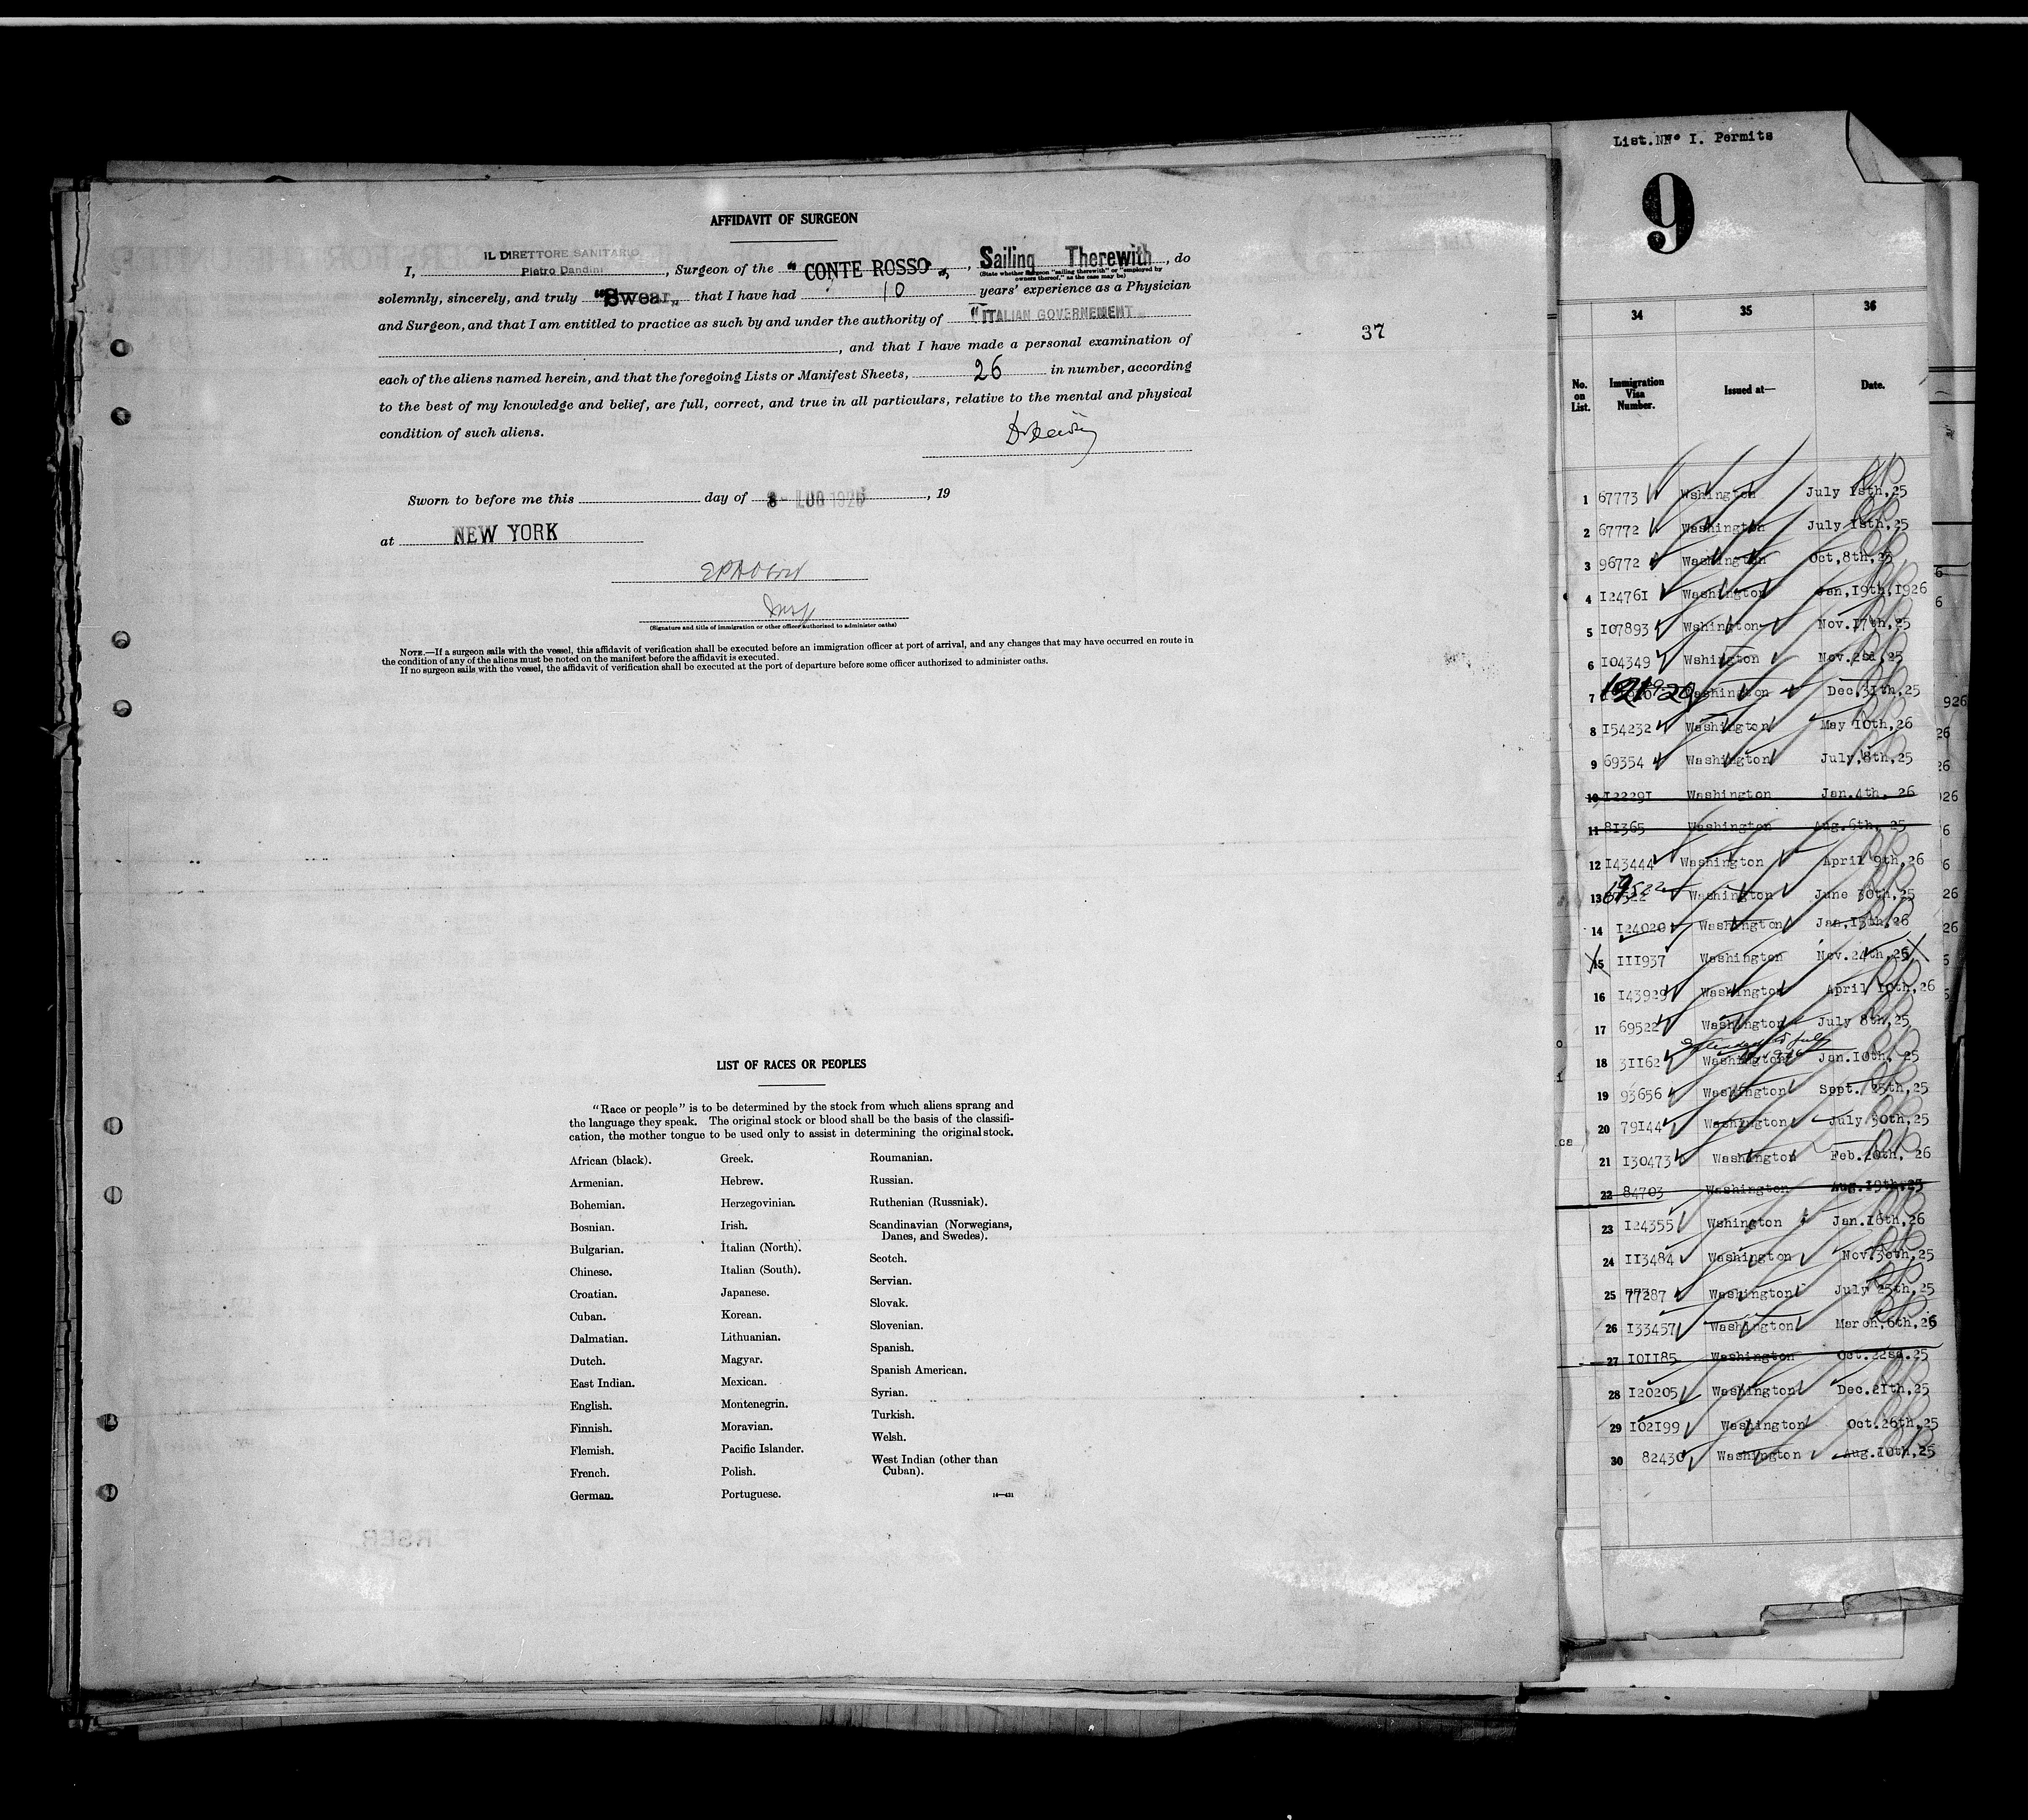 AFFIDAVIT OF SURGEON
I, IL DIRETTORE SANITARIO Pietro Dandini, Surgeon of the "CONTE ROSSO", Sailing Therewith, do
(State whether Surgeon "sailing therewith" or "employed by owners thereof," as the case may be)
solemnly, sincerely, and truly "Swear" that I have had 10 years' experience as a Physician
and Surgeon, and that I am entitled to practice as such by and under the authority of "ITALIAN GOVERNEMENT
, and that I have made a personal examination of
each of the aliens named herein, and that the foregoing Lists or Manifest Sheets, 26 in number, according
to the best of my knowledge and belief, are full, correct, and true in all particulars, relative to the mental and physical
condition of such aliens.
Sworn to before me this day of 8 - LUG 1926, 19
at NEW YORK
Insp
(Signature and title of immigration or other officer authorized to administer oaths)
NOTE.—If a surgeon sails with the vessel, this affidavit of verification shall be executed before an immigration officer at port of arrival, and any changes that may have occurred en route in
the condition of any of the aliens must be noted on the manifest before the affidavit is executed.
If no surgeon sails with the vessel, the affidavit of verification shall be executed at the port of departure before some officer authorized to administer oaths.
37
LIST OF RACES OR PEOPLES
"Race or people" is to be determined by the stock from which aliens sprang and
the language they speak. The original stock or blood shall be the basis of the classifi-
cation, the mother tongue to be used only to assist in determining the original stock.
African (black).
Armenian.
Bohemian.
Bosnian.
Bulgarian.
Chinese.
Croatian.
Cuban.
Dalmatian.
Dutch.
East Indian.
English.
Finnish.
Flemish.
French.
German.
Greek.
Hebrew.
Herzegovinian.
Irish.
Italian (North).
Italian (South).
Japanese.
Korean.
Lithuanian.
Magyar.
Mexican.
Montenegrin.
Moravian.
Pacific Islander.
Polish.
Portuguese.
Roumanian.
Russian.
Ruthenian (Russniak).
Scandinavian (Norwegians,
Danes, and Swedes).
Scotch.
Servian.
Slovak.
Slovenian.
Spanish.
Spanish American.
Syrian.
Turkish.
Welsh.
West Indian (other than
Cuban).
List.NNo I. Permits
9
34 35 36
No. on List. Immigration Visa Number. Issued at— Date.
1 67773 Wshington July 18th,25
2 67772 Washington July 18th,25
3 96772 Washington Oct,8th,25
4 I2476I Washington Jan,19th,1926
5 I07893 Wshington Nov.17th,25
6 I04349 Wshington Nov.2sd,25
7 Washington Dec,31th,25
8 I54232 Washington May 10th,26
9 69354 Washington July,8th,25
10 I2229I Washington Jan.4th, 26
11 8I365 Washington Aug.6th, 25
12 I43444 Washington April 9th,26
13 Washington June 30th,25
14 I24020 Washington Jan,13th,26
15 III937 Washington Nov.24th,25
16 I43929 Washington April 10th,26
17 69522 Washington July 8th,25
Extended to July
18 3II62 Washington Jan.10th, 25
19 93656 Washington Sept. 25th,25
20 79I44 Washington July 30th,25
21 I30473 Washington Feb.20th, 26
22 84703 Washington Aug.19th,25
23 I24355 Wshington Jan.16th,26
24 II3484 Washington Nov.30th,25
25 77287 Washington July 25th,25
26 I33457 Washington March,6th,26
27 I0II85 Washington Oct.22sd.25
28 I20205 Washington Dec.21th,25
29 I02I99 Washington Oct.26th,25
30 82430 Washington Aug.10th,25